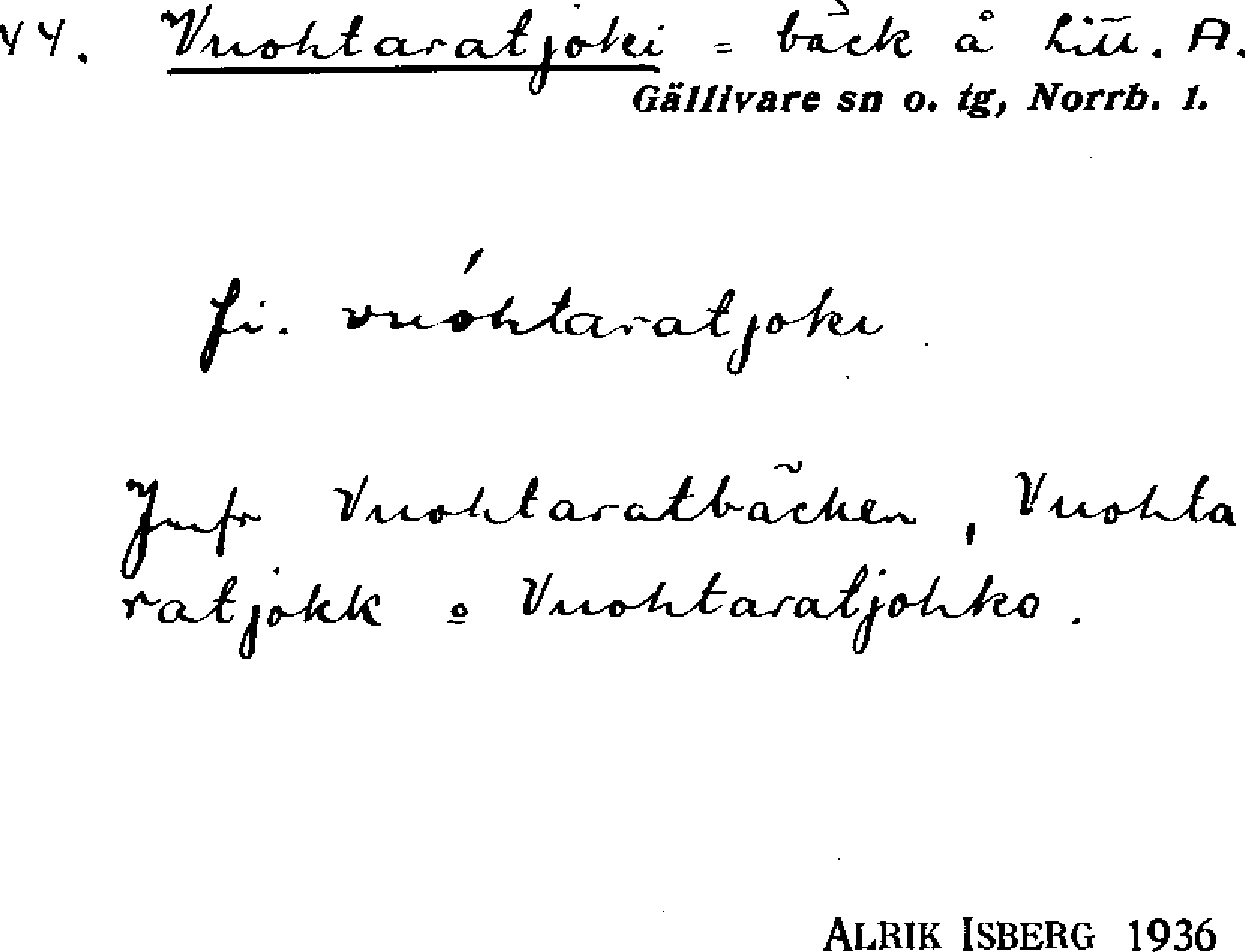 44. Vuohtaratjoki = bäck å Litt. A.
Gällivare sn o. tg, Norrb. l.
fi. vuóhtaratjoki
Jmfr Vuohtaratbäcken, Vuohta
ratjokk o Vuohtaratjohko.
ALRIK ISBERG 1936